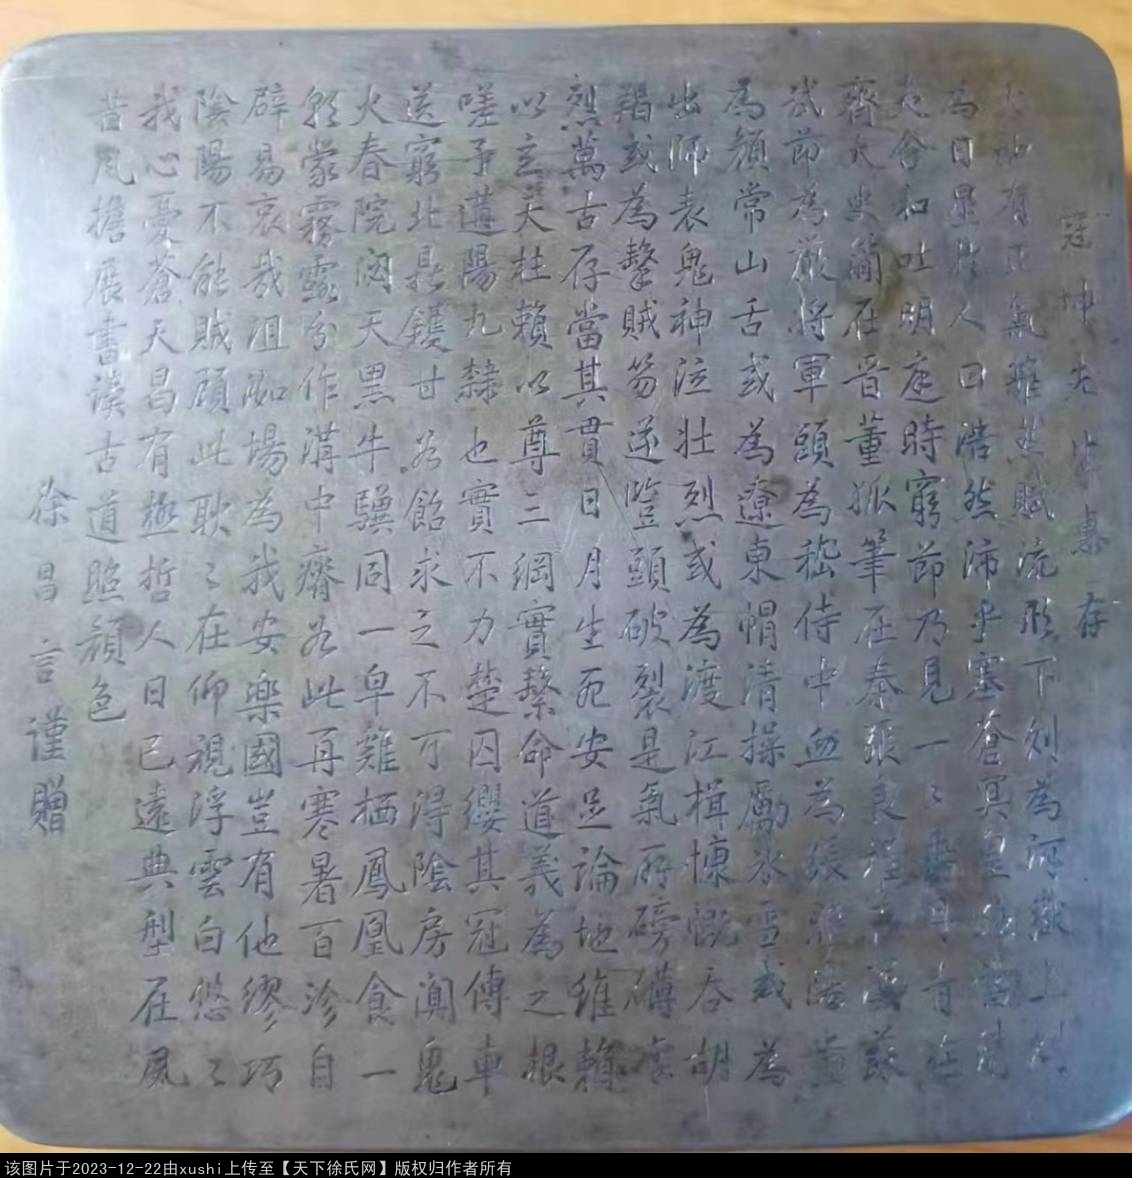 冠坤先生惠存
天地有正氣雜然賦流形下則為河嶽上則
為日星於人曰浩然沛乎塞蒼冥皇路當清
夷含和吐明庭時窮節乃見一々垂丹青在
齊太史簡在晉董狐筆在秦張良椎在漢蘇
武節為嚴將軍頭為嵇侍中血為張睢陽齒
為顏常山舌或為遼東帽清操勵冰雪或為
出師表鬼神泣壯烈或為渡江楫慷慨吞胡
羯或為擊賊笏逆豎頭破裂是氣所磅礴凜
烈萬古存當其貫日月生死安足論地維賴
以立天柱賴以尊三綱實繫命道義為之根
嗟予遘陽九隸也實不力楚囚纓其冠傳車
送窮北鼎鑊甘如飴求之不可得陰房闃鬼
火春院閟天黑牛驥同一皁雞栖鳳凰食一
朝蒙霧露分作溝中瘠如此再寒暑百沴自
辟易哀哉沮洳場為我安樂國豈有他繆巧
陰陽不能賊顧此耿々在仰視浮雲白悠々
我心憂蒼天曷有極哲人日已遠典型在夙
昔風檐展書讀古道照顏色
徐昌言謹贈
该图片于2023-12-22由xushi上传至【天下徐氏网】版权归作者所有